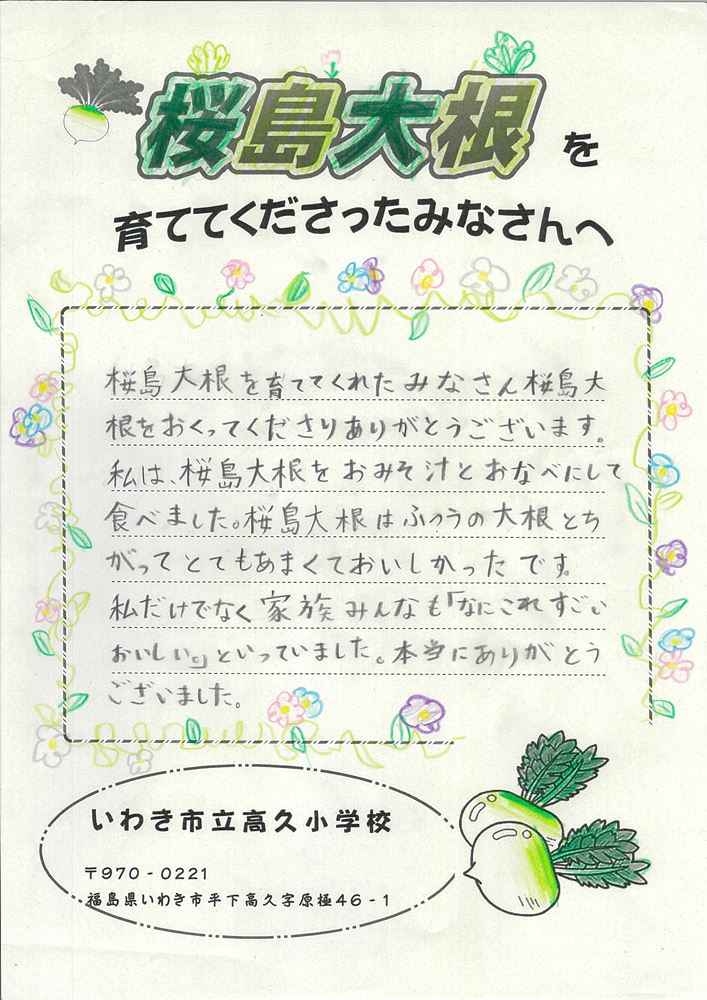 桜島大根を
育ててくださったみなさんへ
桜島大根を育ててくれたみなさん桜島大
根をおくってくださりありがとうございます。
私は、桜島大根をおみそ汁とおなべにして
食べました。桜島大根はふつうの大根とち
がってとてもあまくておいしかったです。
私だけでなく家族みんなも「なにこれすごい
おいしい。」といっていました。本当にありがとう
ございました。
いわき市立高久小学校
〒970-0221
福島県いわき市平下高久字原極46-1